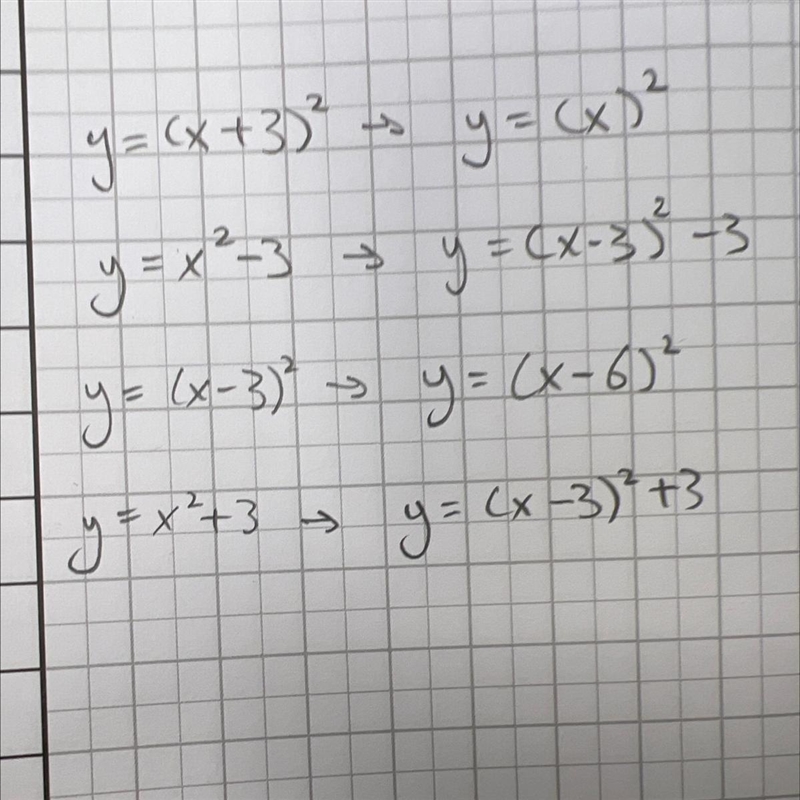 y = (x + 3)² → y = (x)²
y = x² - 3 → y = (x - 3)² - 3
y = (x - 3)² → y = (x - 6)²
y = x² + 3 → y = (x - 3)² + 3